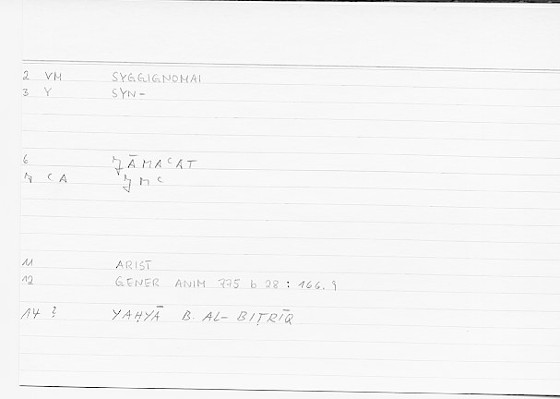 2 VM SYGGIGNOMAI
3 Y SYN-
6 ǦĀMAʿAT
7 ʿA ǦMʿ
11 ARIST
12 GENER ANIM 775 b 28 : 166.9
14 ? YAḤYĀ B. AL-BIṬRĪQ